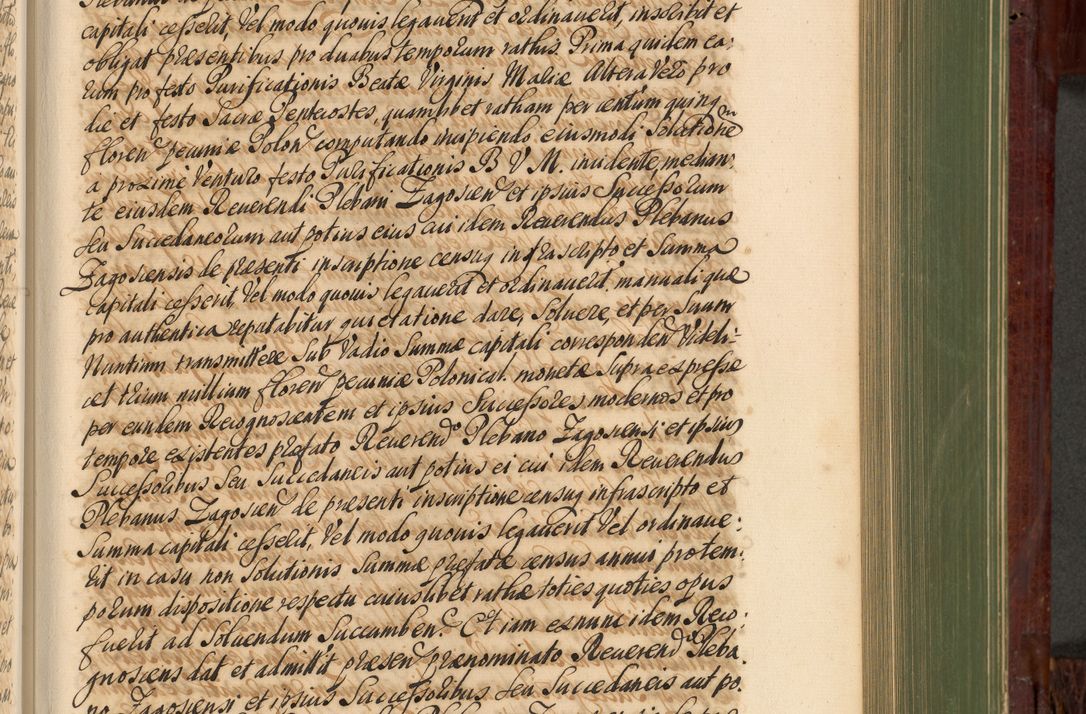 capitali cesserit, vel modo quovis legaverit et ordinaverit, inscribit et
obligat præsentibus pro duabus temporum rathis Prima quidem ea:
rum pro festo Purificationis Beatæ Virginis Mariæ Altera vero pro
die et festo Sacræ Pentecostes, quamlibet ratham per centum quinq
floren pecuniæ Polon computando incipiendo eiusmodi Solutionem
a proximè venturo festo Purificationis B V M. incidente, median:
te eiusdem Reverendi Plebani Zagoscien et ipsius Successorum
seu Succedaneorum aut potius eius cui idem Reverendus Plebanus
Zagosciensis de præsenti inscriptione census infrascripto et Summa
capitali cesserit vel modo quovis legaverit et ordinaverit manuali quæ
pro authentica reputabitur quietatione dare, Solvere, et per Suum
Nuntium transmittere Sub Vadio Summæ capitali corresponden Videli:
cet trium millium floren pecuniæ Polonical. monetæ Supraexpressæ
per eundem Recognoscentem et ipsius Successores modernos et pro
tempore existentes præfato Reverendo Plebano Zagosciensi et ipsius
Successoribus Seu Succedaneis aut potius ei cui idem Reverendus
Plebanus Zagoscien de præsenti inscriptione census infrascripto et
Summa capitali cesserit, vel modo quovis legaverit vel ordinave:
rit in casu non Solutionis Summæ præfatæ census annui pro tem
porum dispositione respectu cuiuslibet rathæ toties quoties opus
fuerit ad Solvendum Succumben. Et iam exnunc idem Reco:
gnoscens dat et admittit præsen prænominato Reverendo Pleba.
no Zagosciensi et ipsius Successoribus Seu Succedaneis aut po.